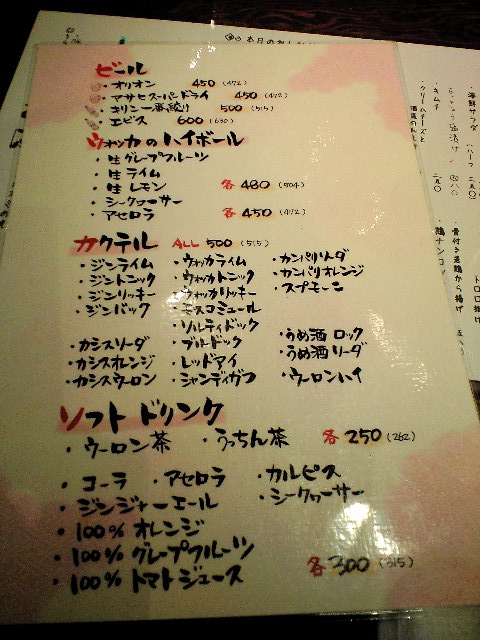 ビール
・オリオン 450 (472)
・アサヒスーパードライ 450 (472)
・キリン一番絞り 500 (515)
・エビス 600 (630)
ウォッカのハイボール
・生グレープフルーツ
・生ライム
・生レモン 各480 (504)
・シークヮーサー
・アセロラ 各450 (472)
カクテル ALL 500 (515)
・ジンライム ・ウォッカライム ・カンパリソーダ
・ジントニック ・ウォッカトニック ・カンパリオレンジ
・ジンリッキー ・ウォッカリッキー ・スプモーニ
・ジンバック ・モスコミュール
・ソルティドック
・カシスソーダ ・ブルドック ・うめ酒 ロック
・カシスオレンジ ・レッドアイ ・うめ酒 ソーダ
・カシスウーロン ・シャンディガフ ・ウーロンハイ
ソフトドリンク
・ウーロン茶 ・うっちん茶 各250 (262)
・コーラ ・アセロラ ・カルピス
・ジンジャーエール ・シークヮーサー
・100% オレンジ
・100% グレープフルーツ
・100% トマトジュース 各300 (315)
・海鮮サラダ
・キムチ 250
・クリームチーズと
・骨付き若鶏から揚げ
・鶏ナンコツ